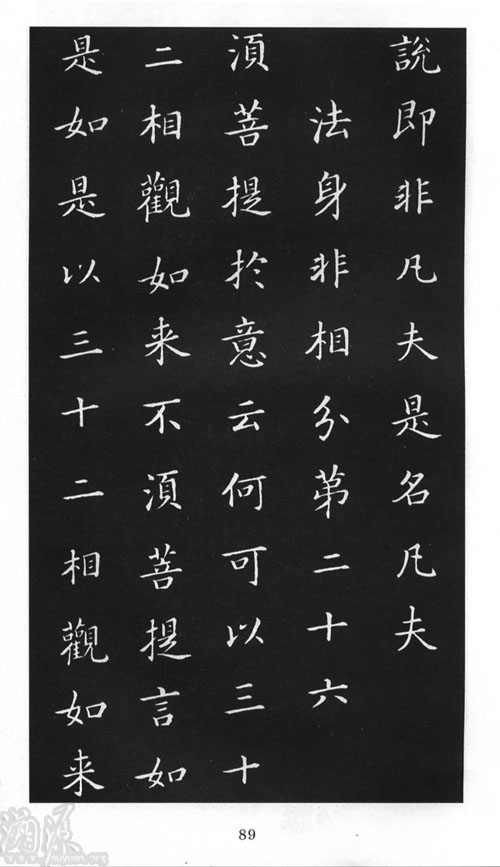 說即非凡夫是名凡夫
法身非相分第二十六
須菩提於意云何可以三十
二相觀如来不須菩提言如
是如是以三十二相觀如来
89